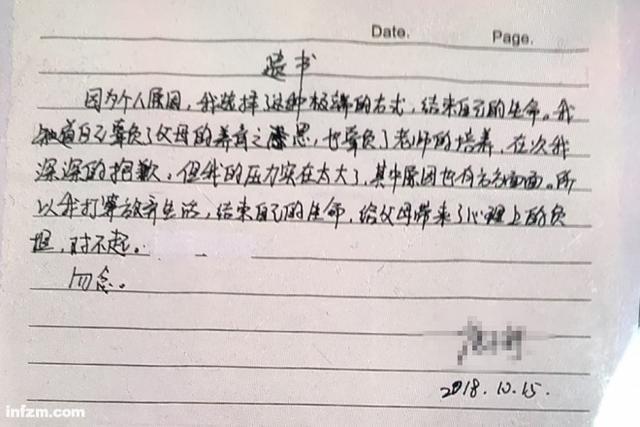 Date.
Page.
遗书
因为个人原因，我选择了这种极端的方式，结束自己的生命。我
知道自己辜负了父母的养育之恩，也辜负了老师的培养，在次我
深深的抱歉，但我的压力实在太大了，其中原因也有方方面面。所
以我打算放弃生活，结束自己的生命，给父母带来了心理上的负
担，对不起。
勿念。
2018.10.15.
infzm.com